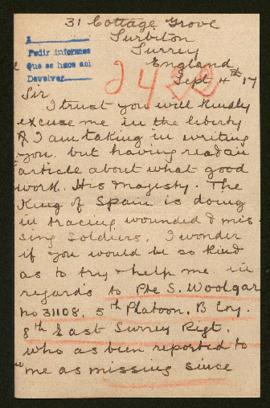 31 Cottage Grove
Surbiton
Surrey
England
Sept 4th 17
A
Pedir informes
Que se hace ani
Devolver
2422
Sir
I trust you will kindly
excuse me in the liberty
I am taking in writing
you, but having read an
article about what good
work. His Majesty. The
King of Spain is doing
in tracing wounded & mis
sing Soldiers, I wonder
if you would be so kind
as to try & help me in
regards to Pte S. Woolgar
no 31108, 5th Platoon, B Coy.
8th East Surrey Rigt.
who as been reported to
me as missing since